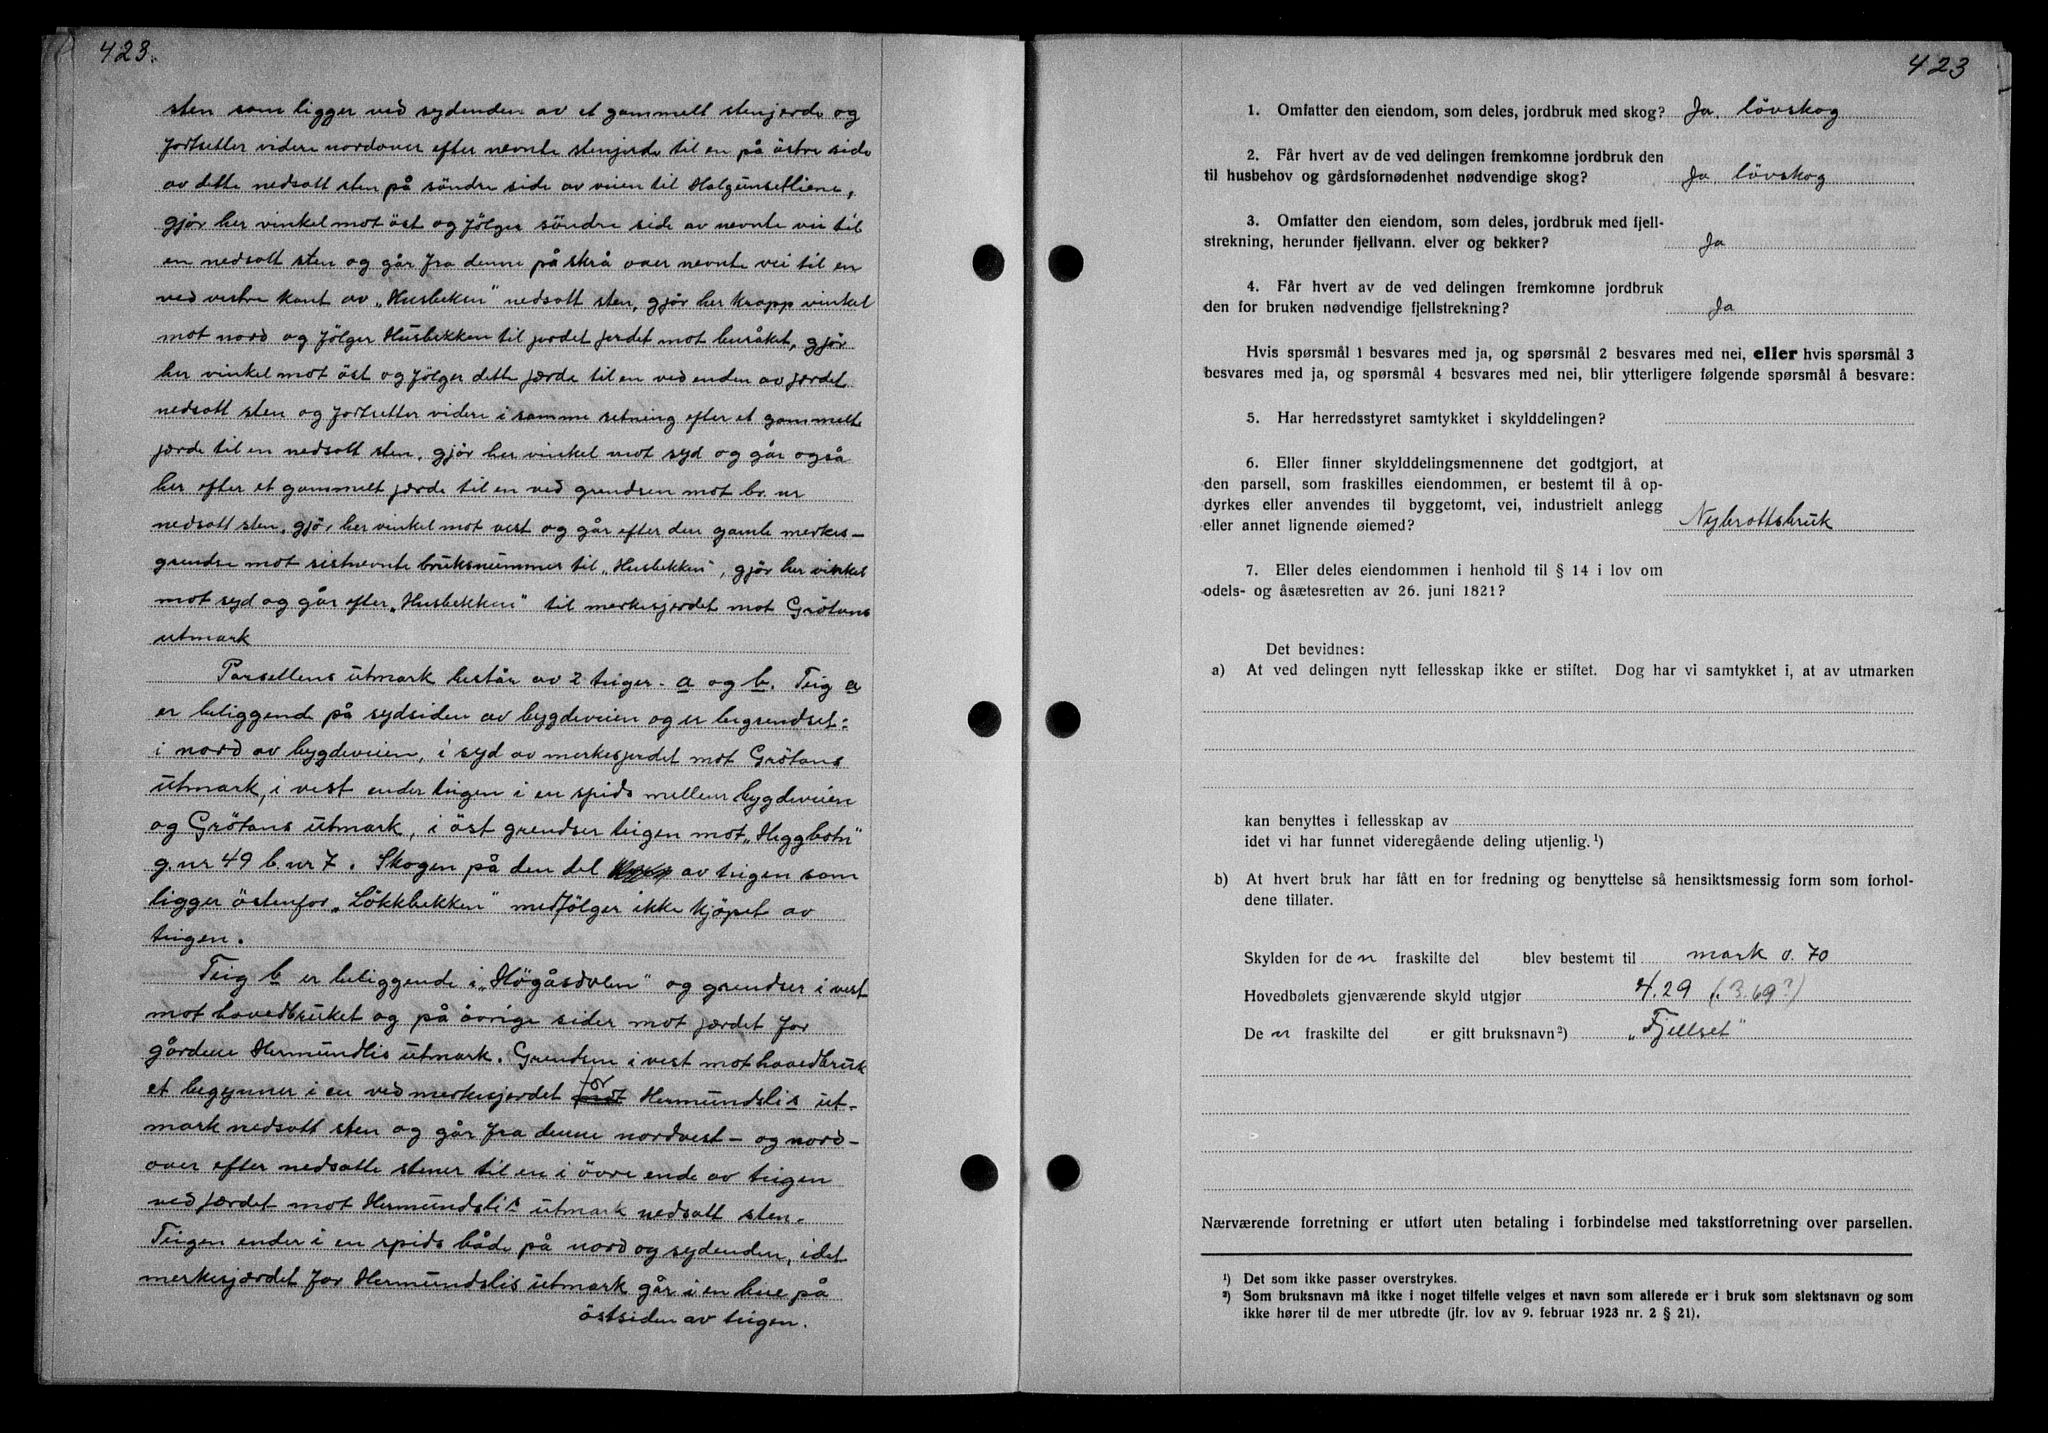 423.
sten som ligger ved sydenden av et gammelt stenjerde og
fortsetter videre nordover efter nevnte stenjerde til en på östre side
av dette nedsatt sten på söndre side av veien til
gjör her vinkel mot öst og fölger söndre side av nevnte vei til
en nedsatt sten og går fra denne på skrå over nevnte vei til en
ved vestre kant av "Husbeken" nedsatt sten, gjör her knapp vinkel
mot nord og fölger Husbekken til jordet jerdet mot buråket, gjör
her vinkel mot öst og fölger dette jærde til en ved enden av jærdet
nedsatt sten og fortsetter videre i samme retning efter et gammelt
jærde til en nedsatt sten, gjör her vinkel mot syd og går også
her efter et gammelt jærde til en ved grendsen mot br. nr
nedsatt sten, gjör her vinkel mot vest og går efter den gamle merkes-
grendse mot sistnevnte bruksnummer til "Husbekken", gjör her vinkel
mot syd og går efter "Husbekken" til merkesjerdet mot Grötans
utmark
Parsellens utmark består av 2 teiger - a og b. Teig a
er beliggend på sydsiden av bygdeveien og er begrendset:
i nord av bygdeveien, i syd av merkesjerdet mot Grötans
utmark, i vest ender teigen i en spids mellem bygdeveien
og Grötans utmark, i öst grendser teigen mot "Heggbotn"
g. nr 49 b. nr 7. Skogen på den del av teigen som
ligger östenfor "Lökkbekken" medfölger ikke kjöpet av
teigen.
Teig b er beliggende i "Högåsdalen" og grendser i vest
mot hovedbruket og på övrige sider mot jærdet for
gårdene Hermundlis utmark. Grendsen i vest mot hovedbruk
et begynner i en ved merkesjerdet mot for Hermundslis ut-
mark nedsatt sten og går fra denne nordvest- og nord-
over efter nedsatte stener til en i övre ende av teigen
ved jærdet mot Hermundslis utmark nedsatt sten.
Teigen ender i en spids både på nord og sydenden, idet
merkesjærdet for Hermundslis utmark går i en bue på
östsiden av teigen.
423
1. Omfatter den eiendom, som deles, jordbruk med skog? Ja, lövskog
2. Får hvert av de ved delingen fremkomne jordbruk den
til husbehov og gårdsfornødenhet nødvendige skog? Ja, lövskog
3. Omfatter den eiendom, som deles, jordbruk med fjell-
strekning, herunder fjellvann. elver og bekker? Ja
4. Får hvert av de ved delingen fremkomne jordbruk
den for bruken nødvendige fjellstrekning? Ja
Hvis spørsmål 1 besvares med ja, og spørsmål 2 besvares med nei, eller hvis spørsmål 3
besvares med ja, og spørsmål 4 besvares med nei, blir ytterligere følgende spørsmål å besvare:
5. Har herredsstyret samtykket i skylddelingen?
6. Eller finner skylddelingsmennene det godtgjort, at
den parsell, som fraskilles eiendommen, er bestemt til å op-
dyrkes eller anvendes til byggetomt, vei, industrielt anlegg
eller annet lignende øiemed? Nybrottsbruk
7. Eller deles eiendommen i henhold til § 14 i lov om
odels- og åsætesretten av 26. juni 1821?
Det bevidnes:
a) At ved delingen nytt fellesskap ikke er stiftet. Dog har vi samtykket i, at av utmarken
kan benyttes i fellesskap av
idet vi har funnet videregående deling utjenlig.¹)
b) At hvert bruk har fått en for fredning og benyttelse så hensiktsmessig form som forhol-
dene tillater.
Skylden for de n fraskilte del blev bestemt til mark 0.70
Hovedbølets gjenværende skyld utgjør 4.29 (3.69?)
De n fraskilte del er gitt bruksnavn²) "Fjellset"
Nærværende forretning er utført uten betaling i forbindelse med takstforretning over parsellen.
¹) Det som ikke passer overstrykes.
²) Som bruksnavn må ikke i noget tilfelle velges et navn som allerede er i bruk som slektsnavn og som
ikke hører til de mer utbredte (jfr. lov av 9. februar 1923 nr. 2 § 21).